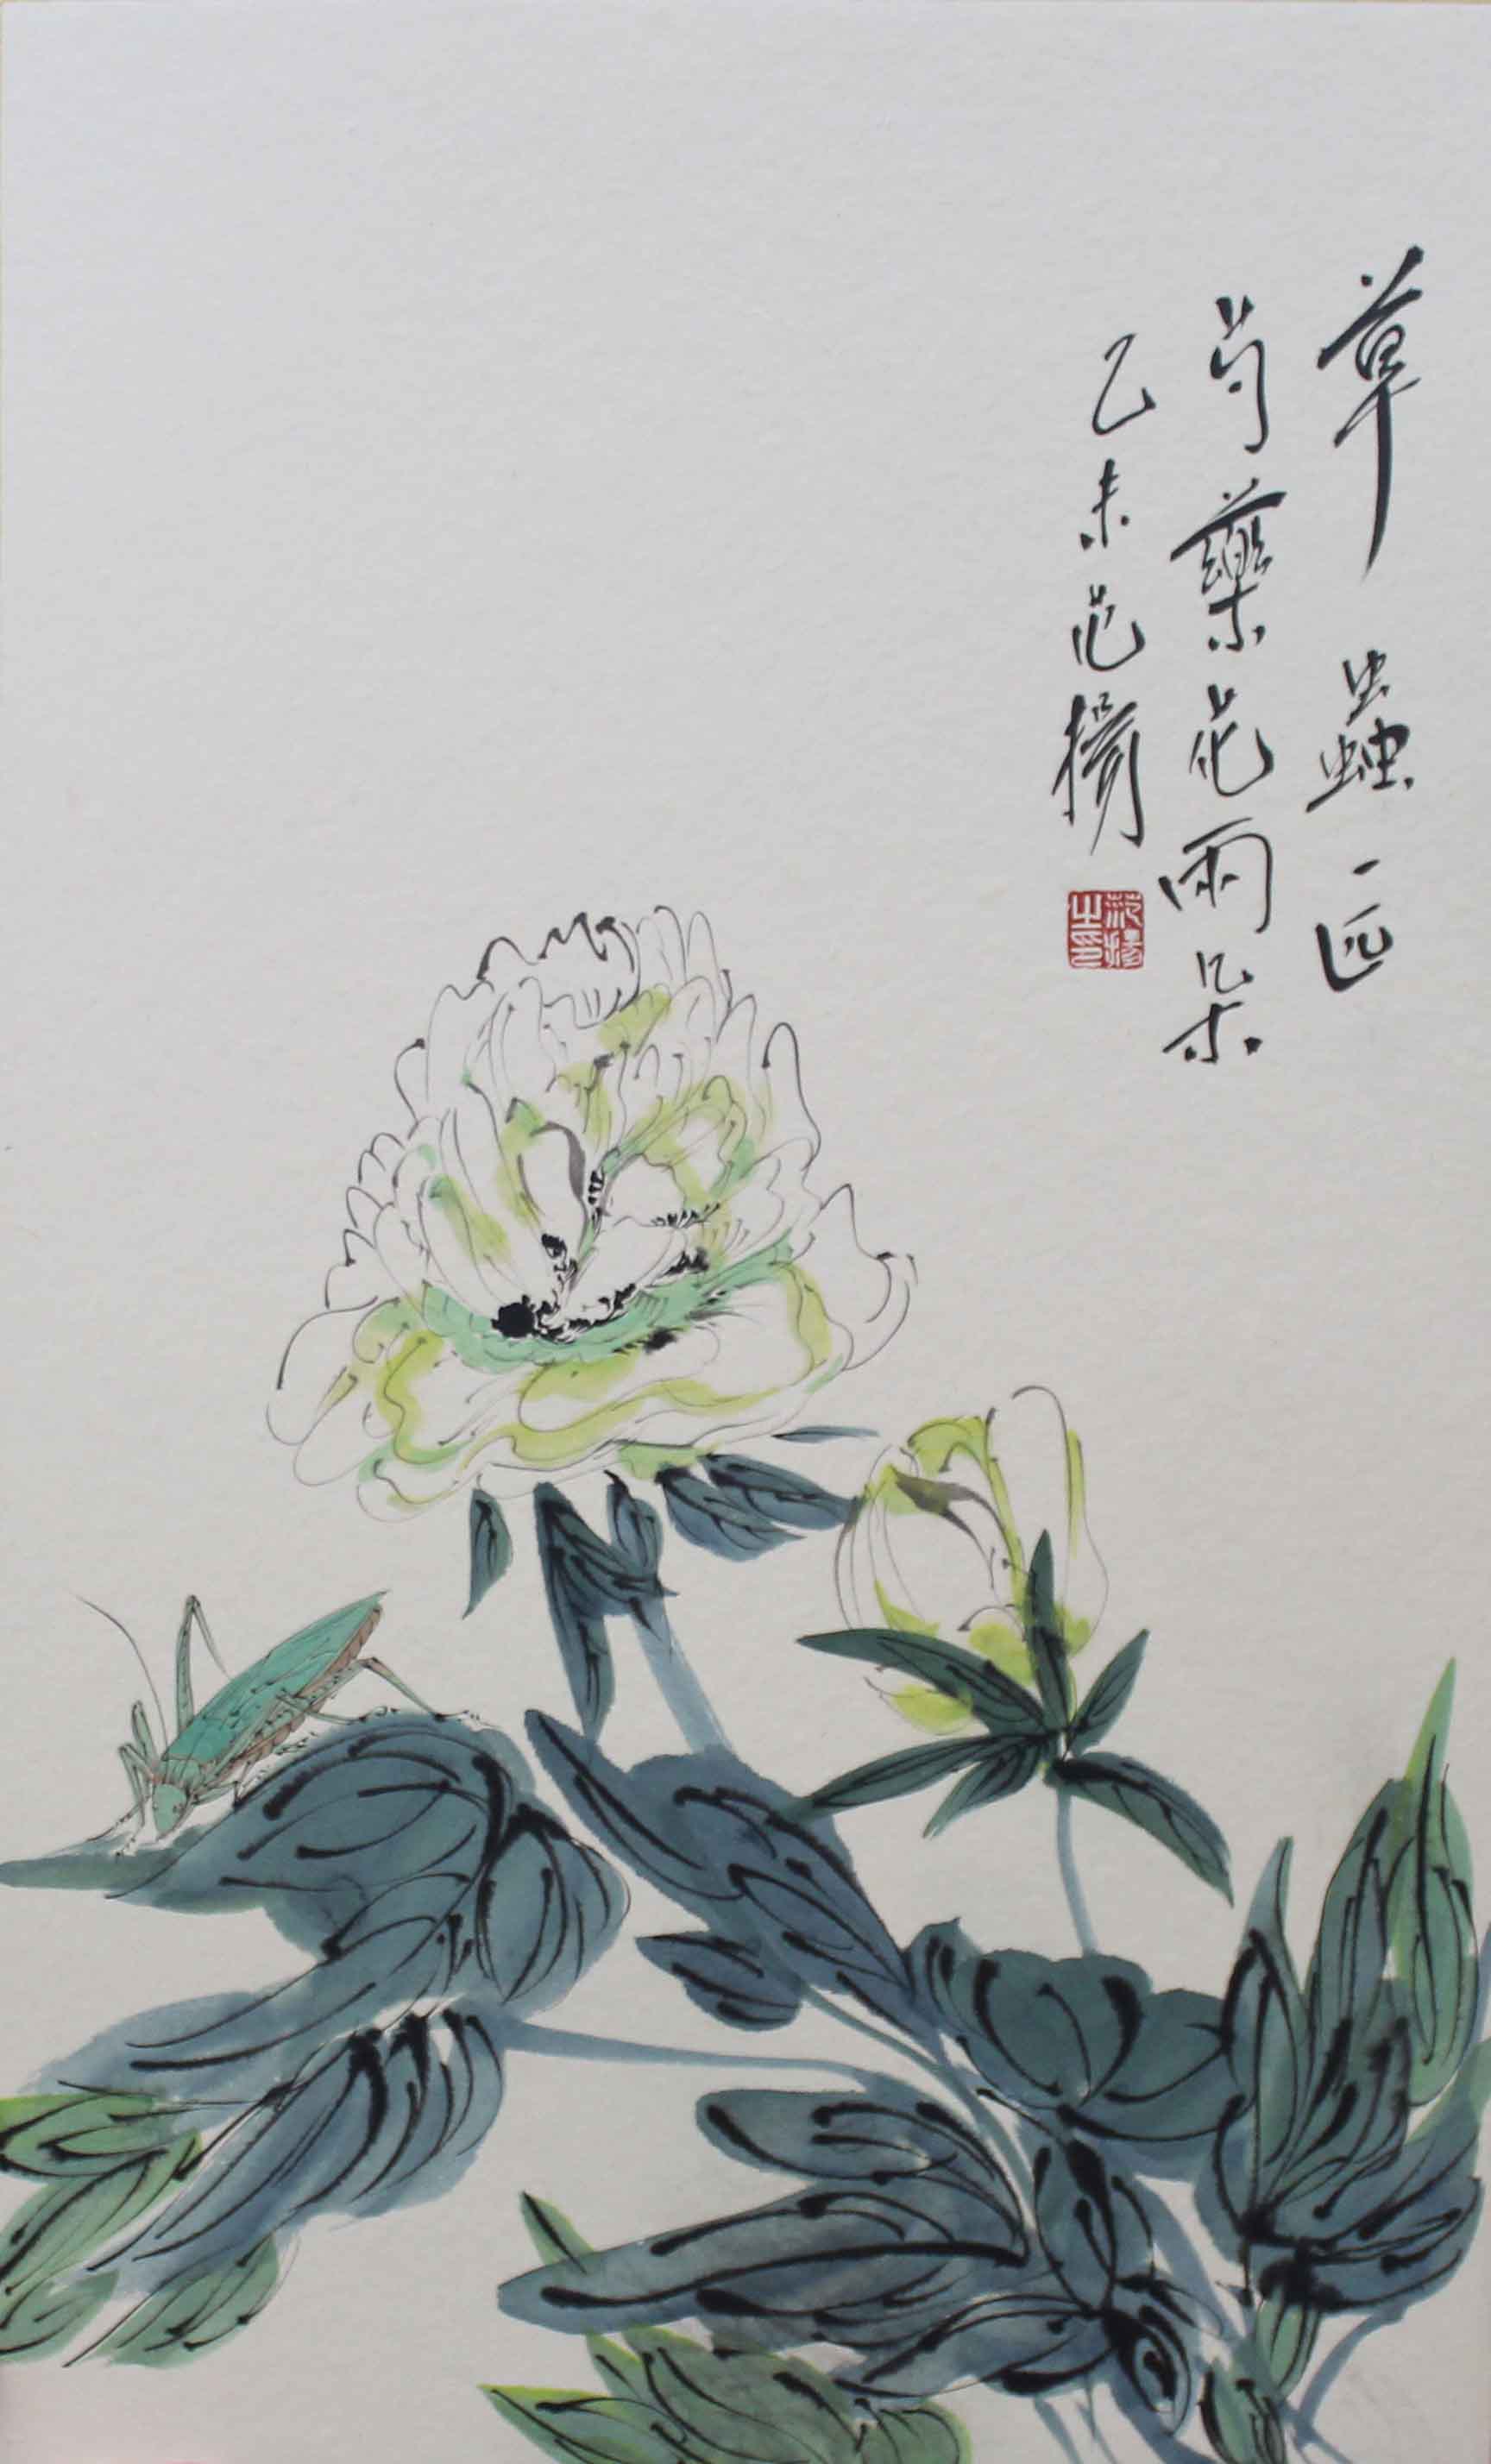 草蟲一匹
芍藥花兩朵
乙未范揚
范揚之印